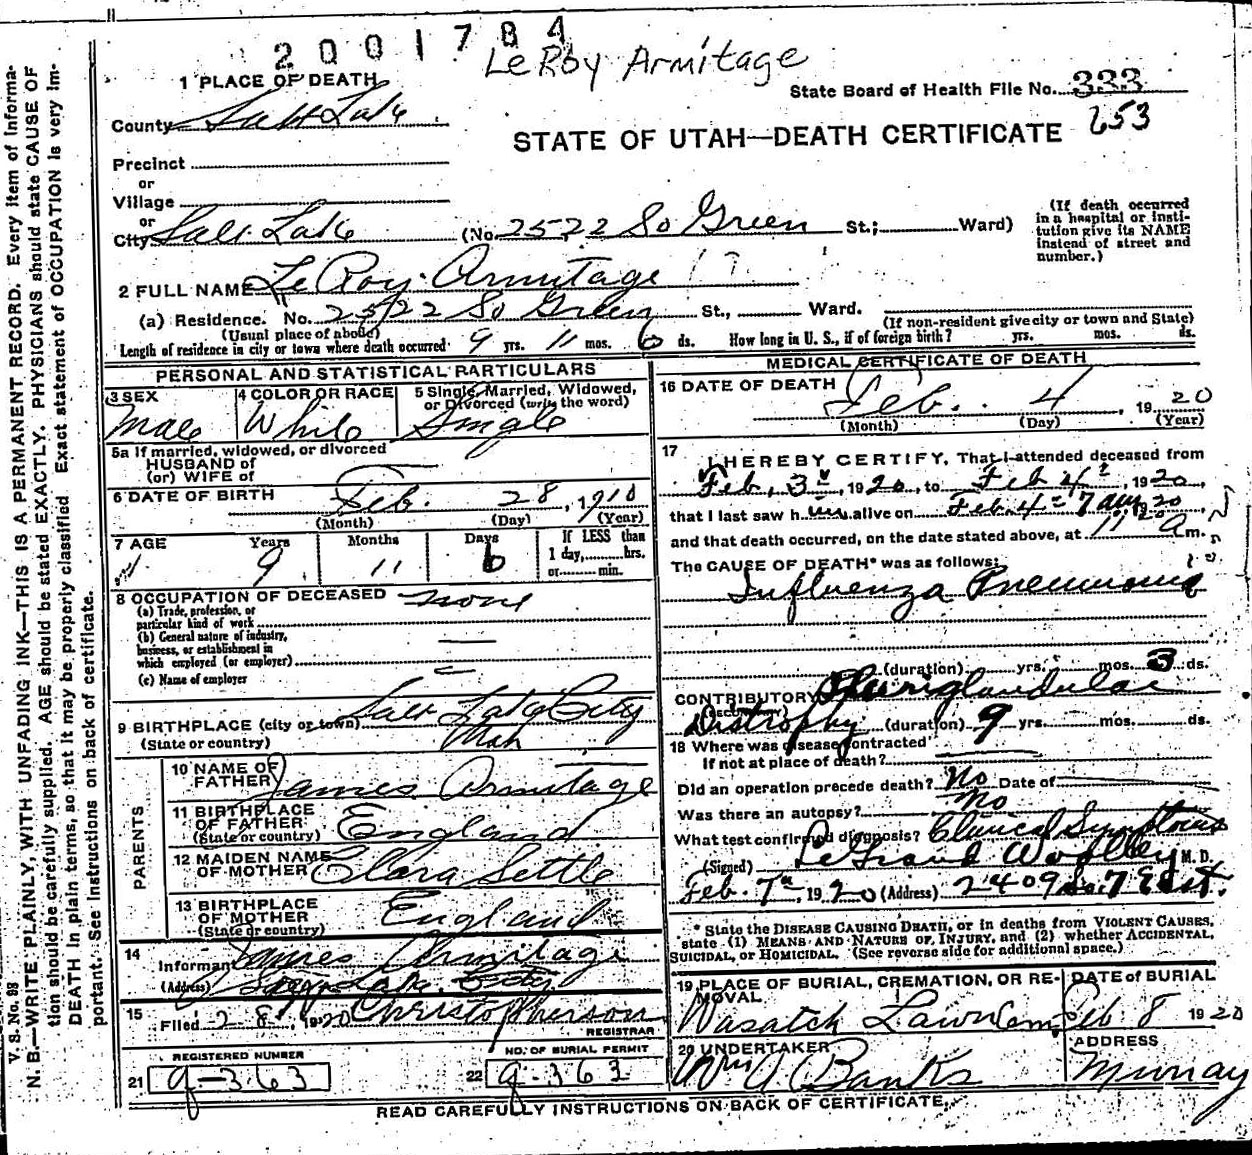 2001784
LeRoy Armitage
1 PLACE OF DEATH
State Board of Health File No. 333
County Salt Lake
653
STATE OF UTAH—DEATH CERTIFICATE
Precinct
or
Village
or
City Salt Lake (No. 2522 So Green St.; Ward)
(If death occurred in a hospital or institution give its NAME instead of street and number.)
2 FULL NAME LeRoy Armitage
(a) Residence. No. 2522 So Green St., Ward.
(Usual place of abode)
(If non-resident give city or town and State)
Length of residence in city or town where death occurred 9 yrs. 11 mos. 6 ds. How long in U. S., if of foreign birth? yrs. mos. ds.
PERSONAL AND STATISTICAL PARTICULARS
3 SEX
Male
4 COLOR OR RACE
White
5 Single, Married, Widowed, or Divorced (write the word)
Single
5a If married, widowed, or divorced
HUSBAND of
(or) WIFE of
6 DATE OF BIRTH Feb. 28, 1910
(Month) (Day) (Year)
7 AGE Years Months Days If LESS than
9 11 6 1 day,......hrs.
or..........min.
8 OCCUPATION OF DECEASED none
(a) Trade, profession, or
particular kind of work
(b) General nature of industry,
business, or establishment in
which employed (or employer)
(c) Name of employer
9 BIRTHPLACE (city or town) Salt Lake City
(State or country) Utah
PARENTS
10 NAME OF FATHER James Armitage
11 BIRTHPLACE OF FATHER England
(State or country)
12 MAIDEN NAME OF MOTHER Clara Settle
13 BIRTHPLACE OF MOTHER England
(State or country)
14 Informant James Armitage
(Address) Salt Lake City
15 Filed 2-8, 1920 Christopherson
REGISTRAR
REGISTERED NUMBER
21 g-363
NO. OF BURIAL PERMIT
22 g-363
MEDICAL CERTIFICATE OF DEATH
16 DATE OF DEATH Feb. 4, 1920
(Month) (Day) (Year)
17 I HEREBY CERTIFY, That I attended deceased from
Feb, 3, 1920, to Feb 4, 1920,
that I last saw him alive on Feb. 4 - 7 am, 1920
and that death occurred, on the date stated above, at 11 a m.
The CAUSE OF DEATH* was as follows:
Influenza Pneumonia
(duration) yrs. mos. 3 ds.
CONTRIBUTORY Pluriglandular
(SECONDARY)
Distrophy (duration) 9 yrs. mos. ds.
18 Where was disease contracted
If not at place of death?
Did an operation precede death? No Date of
Was there an autopsy? No
What test confirmed diagnosis? Clinical Symptoms
(Signed) LeGrand Woolley M. D.
Feb. 7th, 1920 (Address) 2409 So. 7 East.
* State the DISEASE CAUSING DEATH, or in deaths from VIOLENT CAUSES,
state (1) MEANS AND NATURE OF INJURY, and (2) whether ACCIDENTAL,
SUICIDAL, or HOMICIDAL. (See reverse side for additional space.)
19 PLACE OF BURIAL, CREMATION, OR REMOVAL
Wasatch Lawn Cem.
DATE of BURIAL
Feb 8 1920
20 UNDERTAKER
Wm A Banks
ADDRESS
Murray
READ CAREFULLY INSTRUCTIONS ON BACK OF CERTIFICATE.
V. S. No. 98
N. B.—WRITE PLAINLY, WITH UNFADING INK—THIS IS A PERMANENT RECORD. Every item of information should be carefully supplied. AGE should be stated EXACTLY. PHYSICIANS should state CAUSE OF DEATH in plain terms, so that it may be properly classified. Exact statement of OCCUPATION is very important. See instructions on back of certificate.